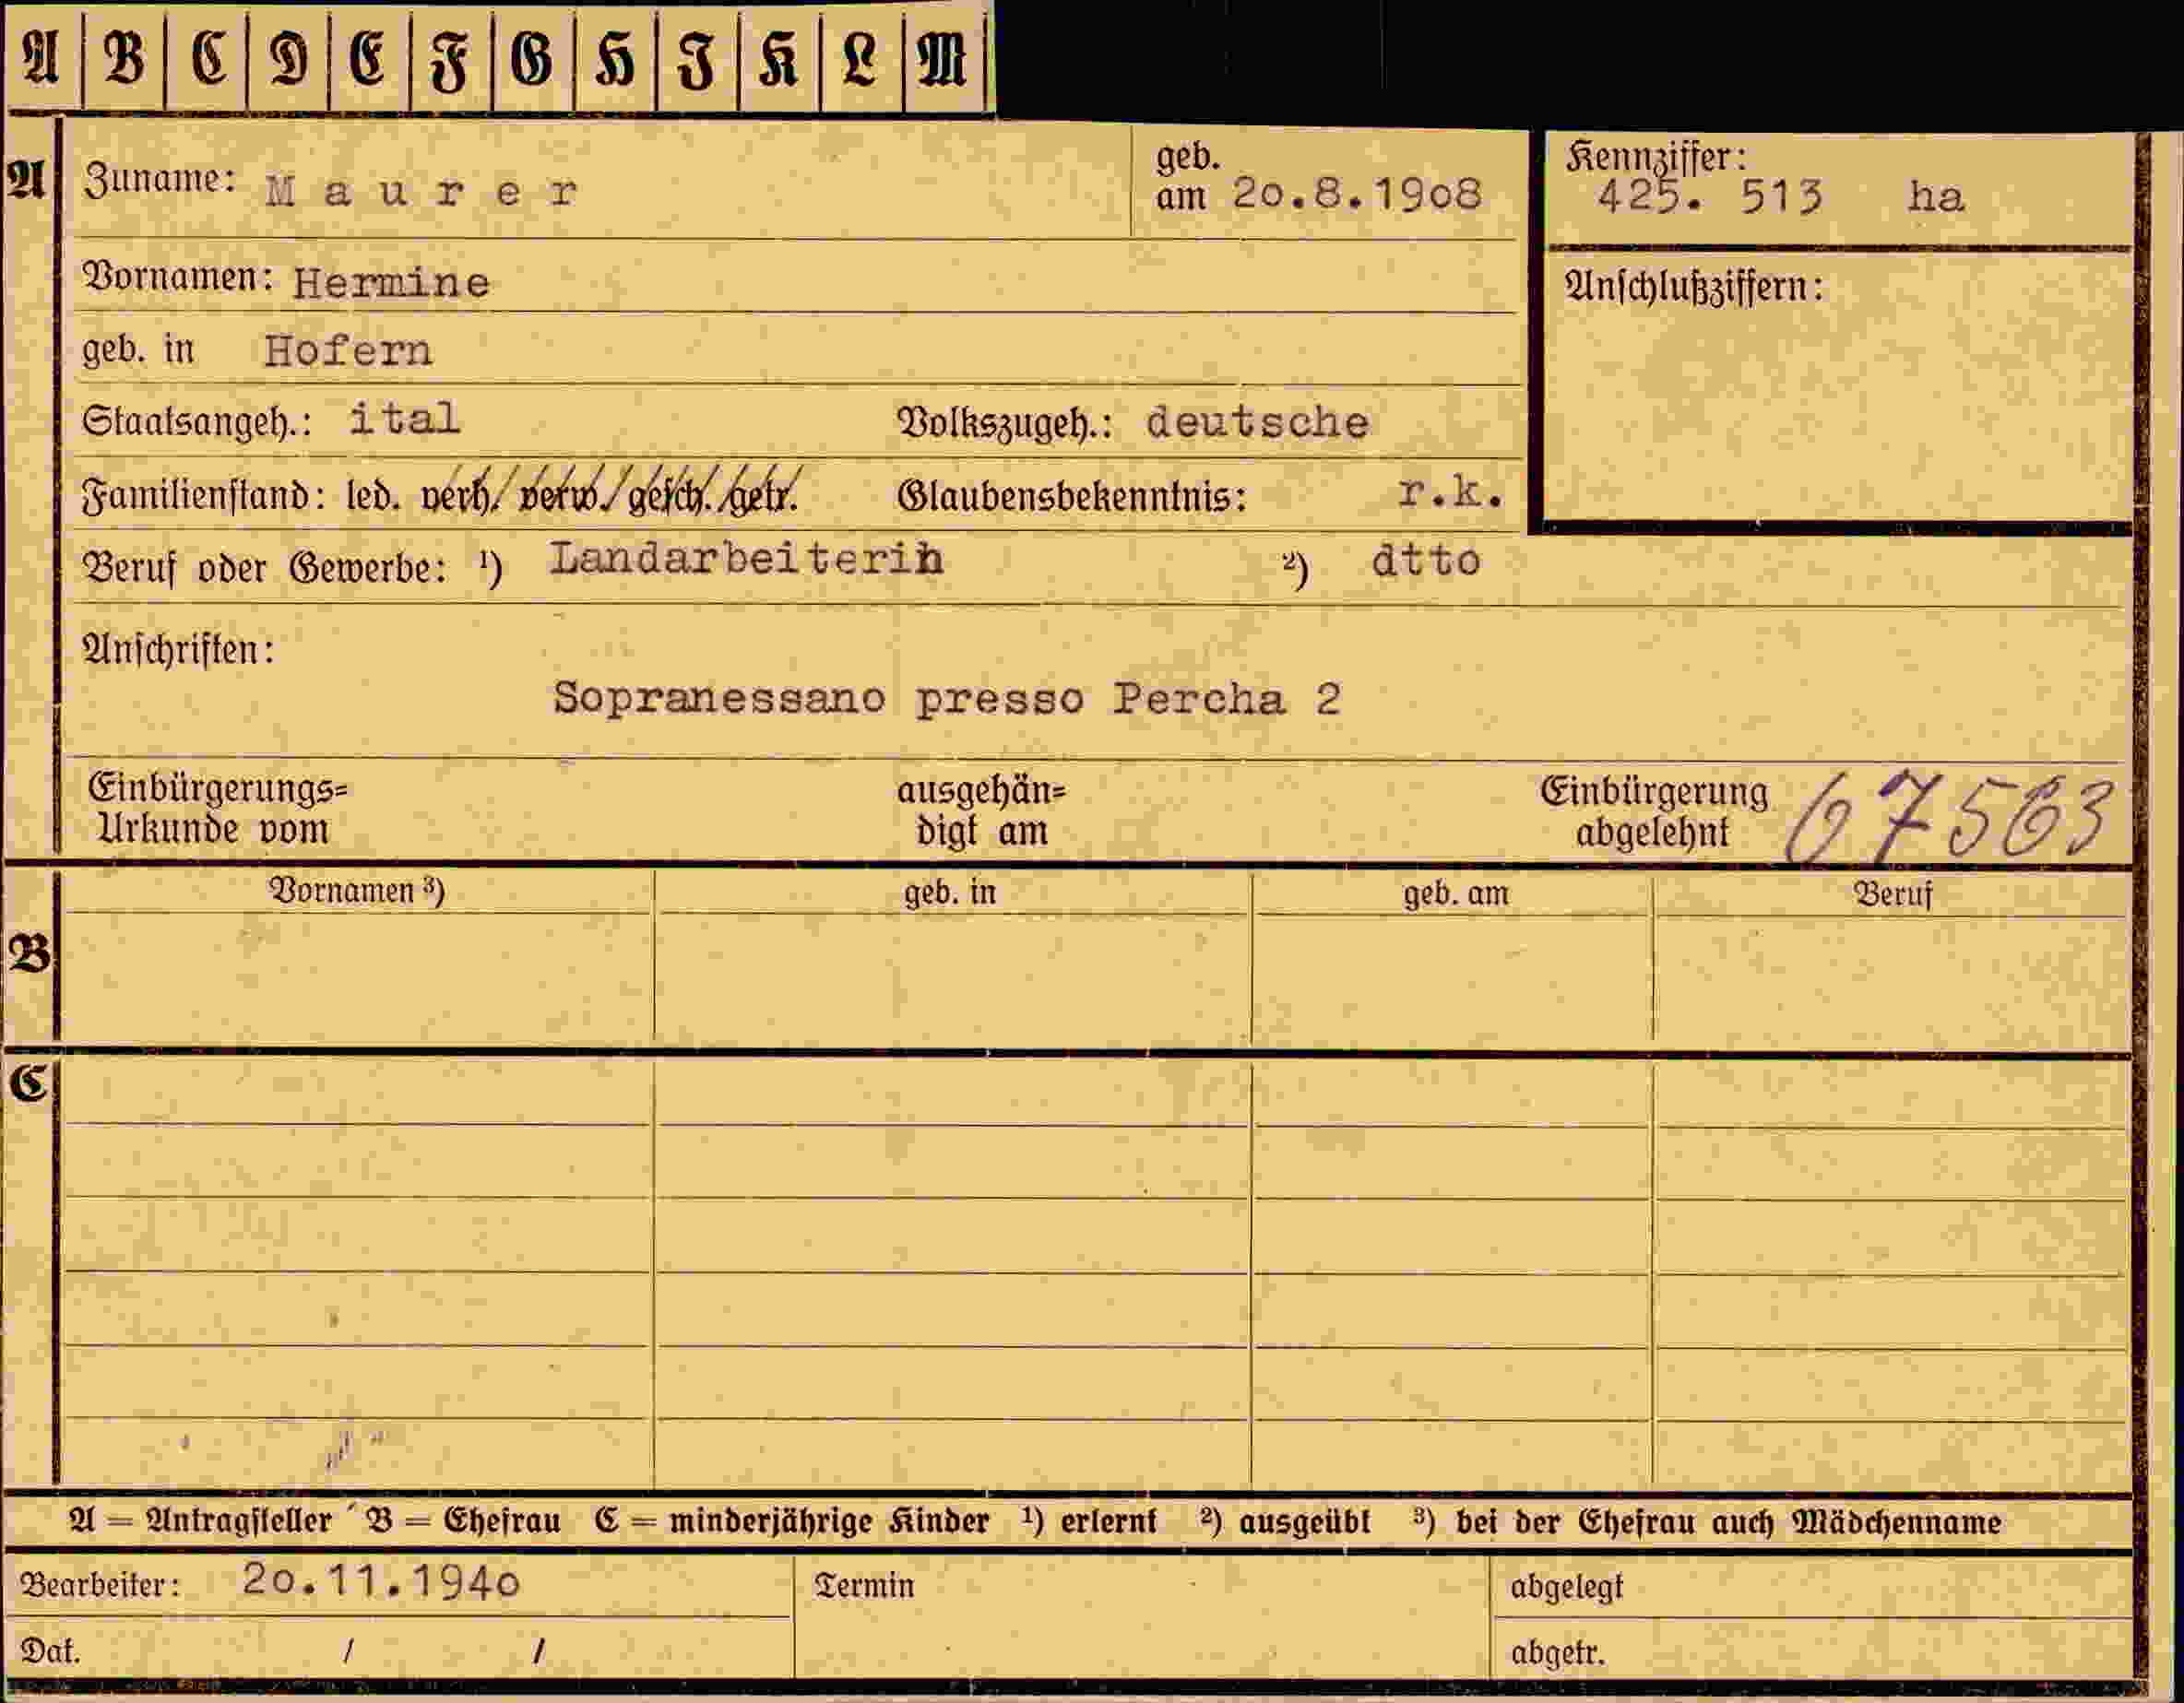 A B C D E F G H I K L M
A Zuname: Maurer geb. am 2o.8.19o8 Kennziffer: 425. 513 ha
Vornamen: Hermine Anschlußziffern:
geb. in Hofern
Staatsangeh.: ital Volkszugeh.: deutsche
Familienstand: led. verh. verw. gesch. getr. Glaubensbekenntnis: r.k.
Beruf oder Gewerbe: ¹) Landarbeiterin ²) dtto
Anschriften:
Sopranessano presso Percha 2
Einbürgerungs= ausgehän= Einbürgerung
Urkunde vom digt am abgelehnt 67563
Vornamen ³) geb. in geb. am Beruf
B
C
A = Antragsteller B = Ehefrau C = minderjährige Kinder ¹) erlernt ²) ausgeübt ³) bei der Ehefrau auch Mädchenname
Bearbeiter: 2o.11.194o Termin abgelegt
Dat. / / abgetr.